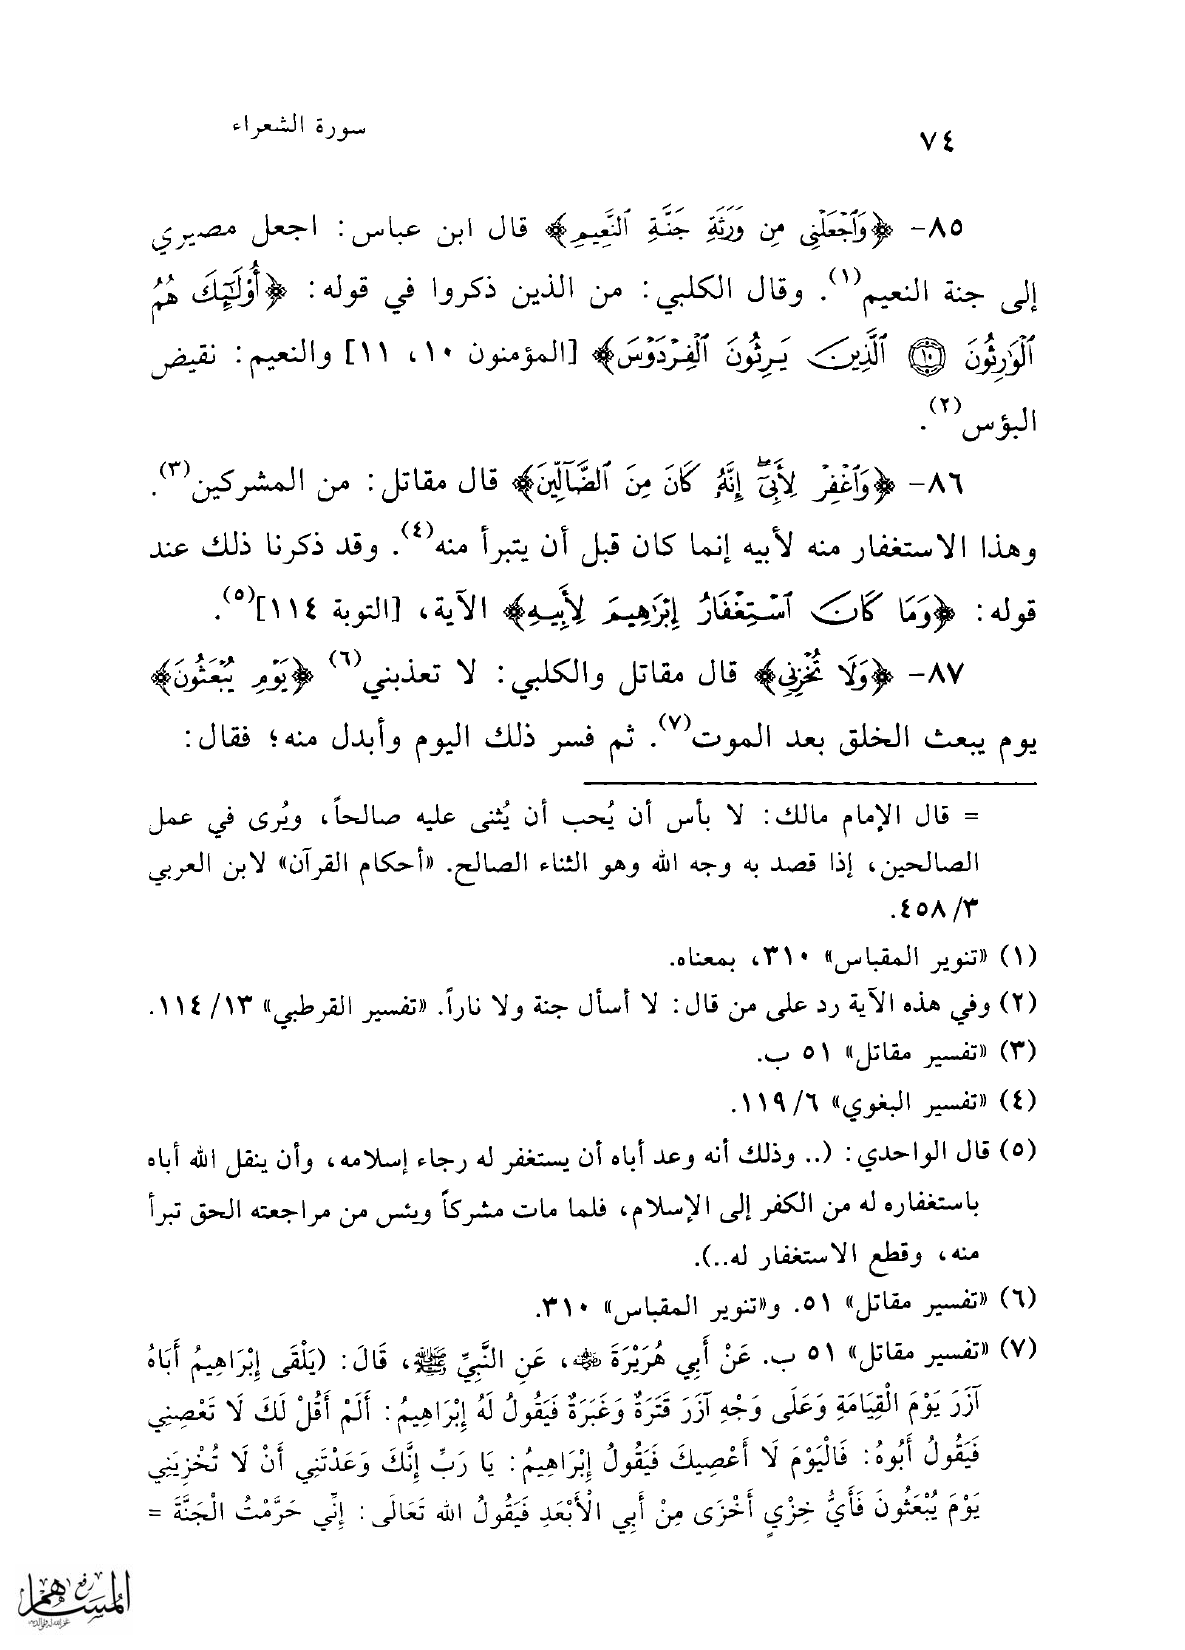 ٧٤
سورة الشعراء
٨٥- ﴿وَٱجۡعَلۡنِي مِن وَرَثَةِ جَنَّةِ ٱلنَّعِيمِ﴾ قال ابن عباس: اجعل مصيري
إلى جنة النعيم(١). وقال الكلبي: من الذين ذكروا في قوله: ﴿أُوْلَٰٓئِكَ هُمُ
ٱلۡوَٰرِثُونَ ١٠ ٱلَّذِينَ يَرِثُونَ ٱلۡفِرۡدَوۡسَ﴾ [المؤمنون ١٠، ١١] والنعيم: نقيض
البؤس(٢).
٨٦- ﴿وَٱغۡفِرۡ لِأَبِيٓ إِنَّهُۥ كَانَ مِنَ ٱلضَّآلِّينَ﴾ قال مقاتل: من المشركين(٣).
وهذا الاستغفار منه لأبيه إنما كان قبل أن يتبرأ منه(٤). وقد ذكرنا ذلك عند
قوله: ﴿وَمَا كَانَ ٱسۡتِغۡفَارُ إِبۡرَٰهِيمَ لِأَبِيهِ﴾ الآية، [التوبة ١١٤](٥).
٨٧- ﴿وَلَا تُخۡزِنِي﴾ قال مقاتل والكلبي: لا تعذبني(٦) ﴿يَوۡمَ يُبۡعَثُونَ﴾
يوم يبعث الخلق بعد الموت(٧). ثم فسر ذلك اليوم وأبدل منه؛ فقال:
= قال الإمام مالك: لا بأس أن يُحب أن يُثنى عليه صالحاً، ويُرى في عمل
الصالحين، إذا قصد به وجه الله وهو الثناء الصالح. «أحكام القرآن» لابن العربي
٣/ ٤٥٨.
(١) «تنوير المقباس» ٣١٠، بمعناه.
(٢) وفي هذه الآية رد على من قال: لا أسأل جنة ولا ناراً. «تفسير القرطبي» ١٣/ ١١٤.
(٣) «تفسير مقاتل» ٥١ ب.
(٤) «تفسير البغوي» ٦/ ١١٩.
(٥) قال الواحدي: (.. وذلك أنه وعد أباه أن يستغفر له رجاء إسلامه، وأن ينقل الله أباه
باستغفاره له من الكفر إلى الإسلام، فلما مات مشركاً ويئس من مراجعته الحق تبرأ
منه، وقطع الاستغفار له..).
(٦) «تفسير مقاتل» ٥١. و«تنوير المقباس» ٣١٠.
(٧) «تفسير مقاتل» ٥١ ب. عَنْ أَبِي هُرَيْرَةَ رضي الله عنه، عَنِ النَّبِيِّ ﷺ، قَالَ: (يَلْقَى إِبْرَاهِيمُ أَبَاهُ
آزَرَ يَوْمَ الْقِيَامَةِ وَعَلَى وَجْهِ آزَرَ قَتَرَةٌ وَغَبَرَةٌ فَيَقُولُ لَهُ إِبْرَاهِيمُ: أَلَمْ أَقُلْ لَكَ لَا تَعْصِنِي
فَيَقُولُ أَبُوهُ: فَالْيَوْمَ لَا أَعْصِيكَ فَيَقُولُ إِبْرَاهِيمُ: يَا رَبِّ إِنَّكَ وَعَدْتَنِي أَنْ لَا تُخْزِيَنِي
يَوْمَ يُبْعَثُونَ فَأَيُّ خِزْيٍ أَخْزَى مِنْ أَبِي الْأَبْعَدِ فَيَقُولُ الله تَعَالَى: إِنِّي حَرَّمْتُ الْجَنَّةَ =